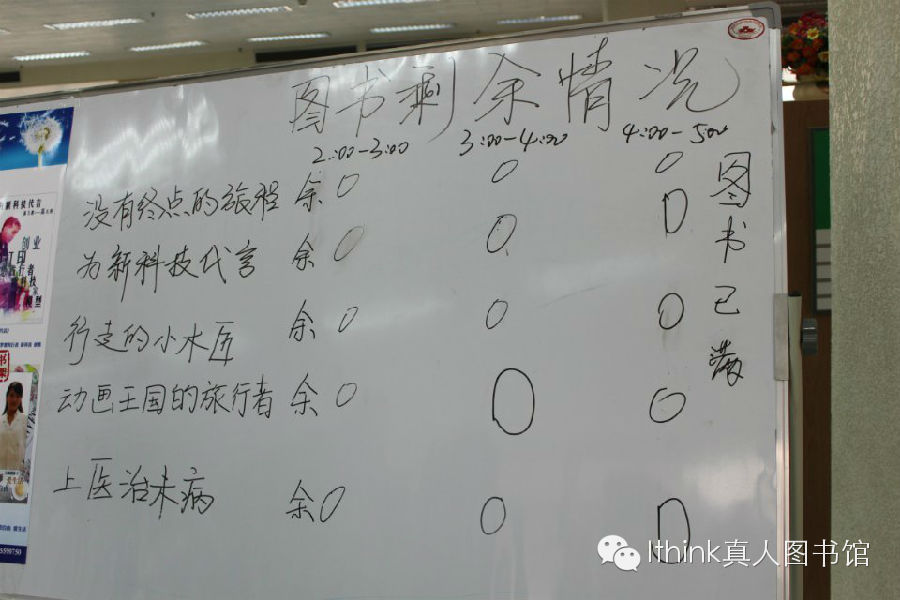 图书剩余情况
2:00-3:00 3:00-4:00 4:00-500
没有终点的旅程 余 0 0 0
为新科技代言 余 0 0 0
行走的小木医 余 0 0 0
动画王国的旅行者 余 0 0 0
上医治未病 余 0 0 0
图书已满
新科技代言
创业
5599750
Ithink真人图书馆